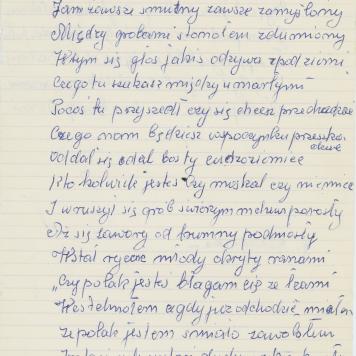 Jam zawsze smutny zawsze zamyślony
Między grobami stanołem zdumiony
Wtym się głos jakiś odzywa zpodziemi
Czego tu szukasz między umarłymi
Pocoś tu przyszedł czy się chcesz przechadzać
Czego nam będziesz wspoczynku przeszka
dzać
Oddal się odal boś ty cudzoziemiec
Kto kolwiek jesteś czy moskal czy niemiec
I wruszył się grób świerzym mchem porosły
Aż się zawory od trumny podniosły
Wstał rycerz młody okryty ranami
„Czy polak jesteś błagam cię ze łzami
Westchnołem a gdy już odchodzić miałem
że polak jestem śmiało zawołałem